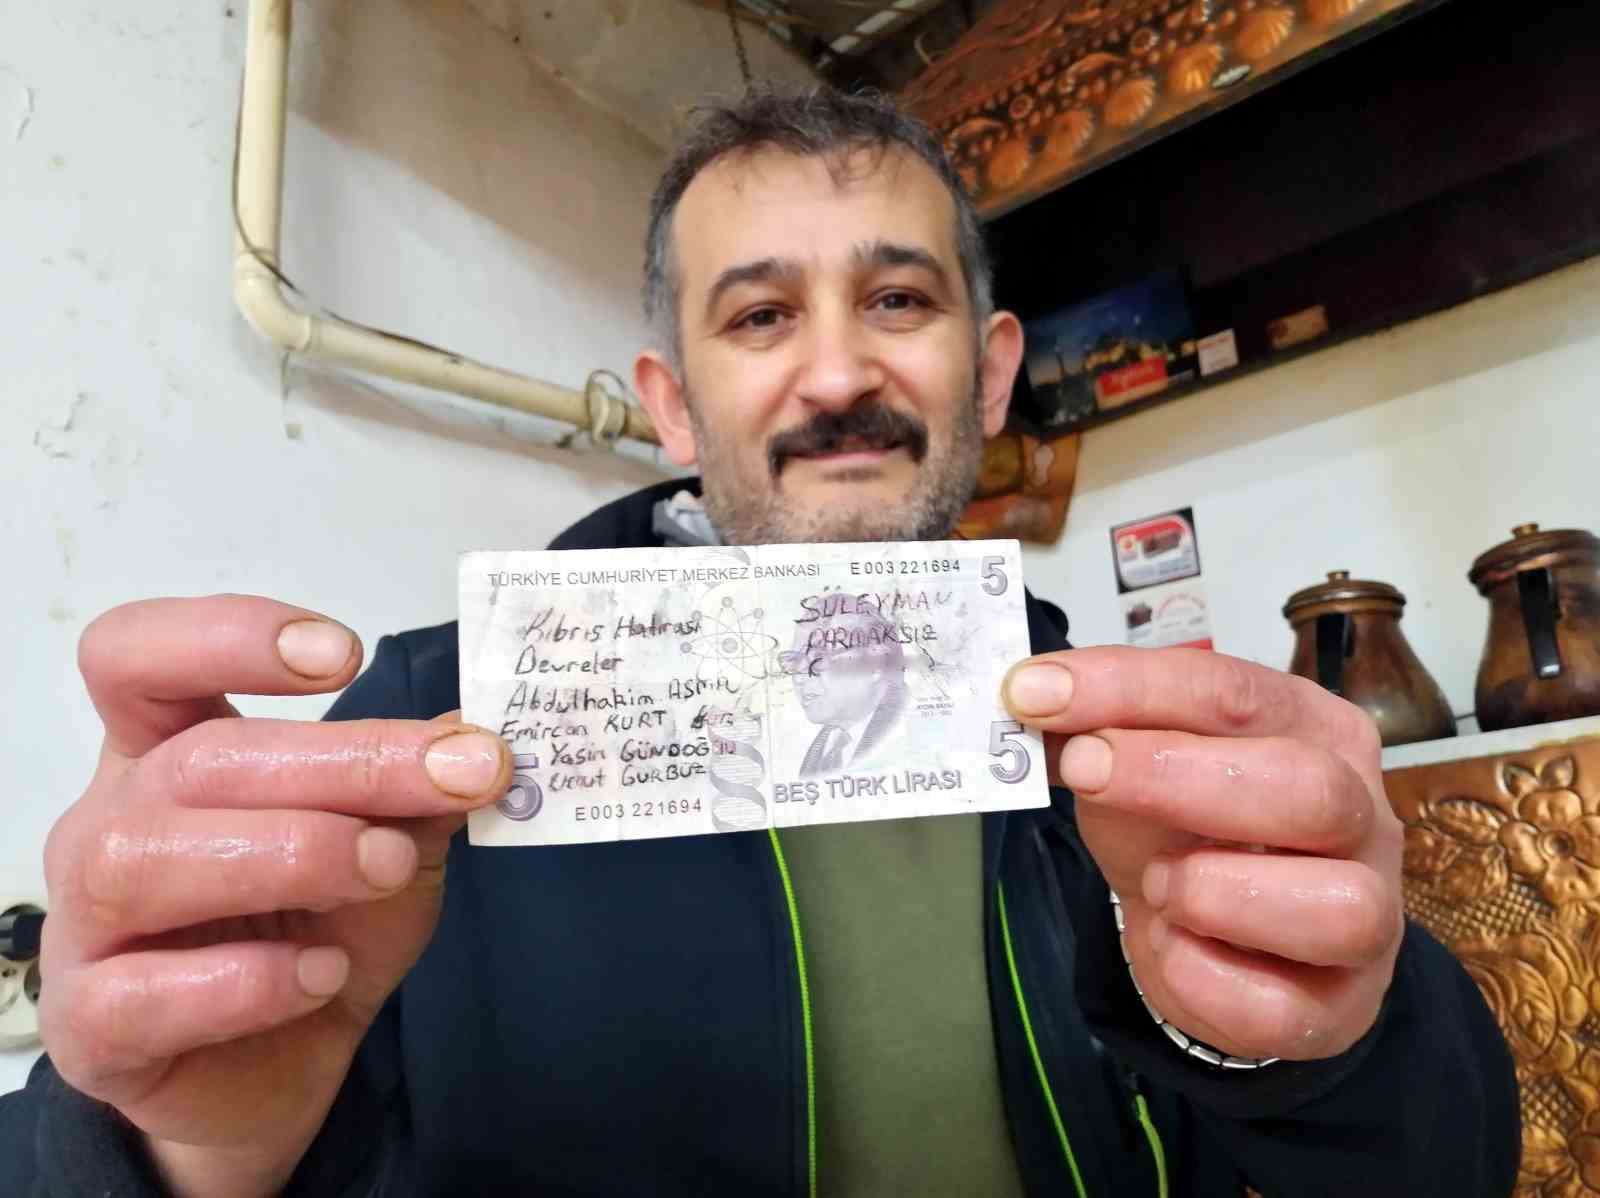 TÜRKİYE CUMHURİYET MERKEZ BANKASI E 003 221694 5
Kıbrıs Hatırası
Devreler
Abdulhakim ASMA
Emircan KURT
Yasin GÜNDOĞDU
Umut GURBUZ
SÜLEYMAN
PARMAKSIZ
5
5
BEŞ TÜRK LİRASI
E 003 221694